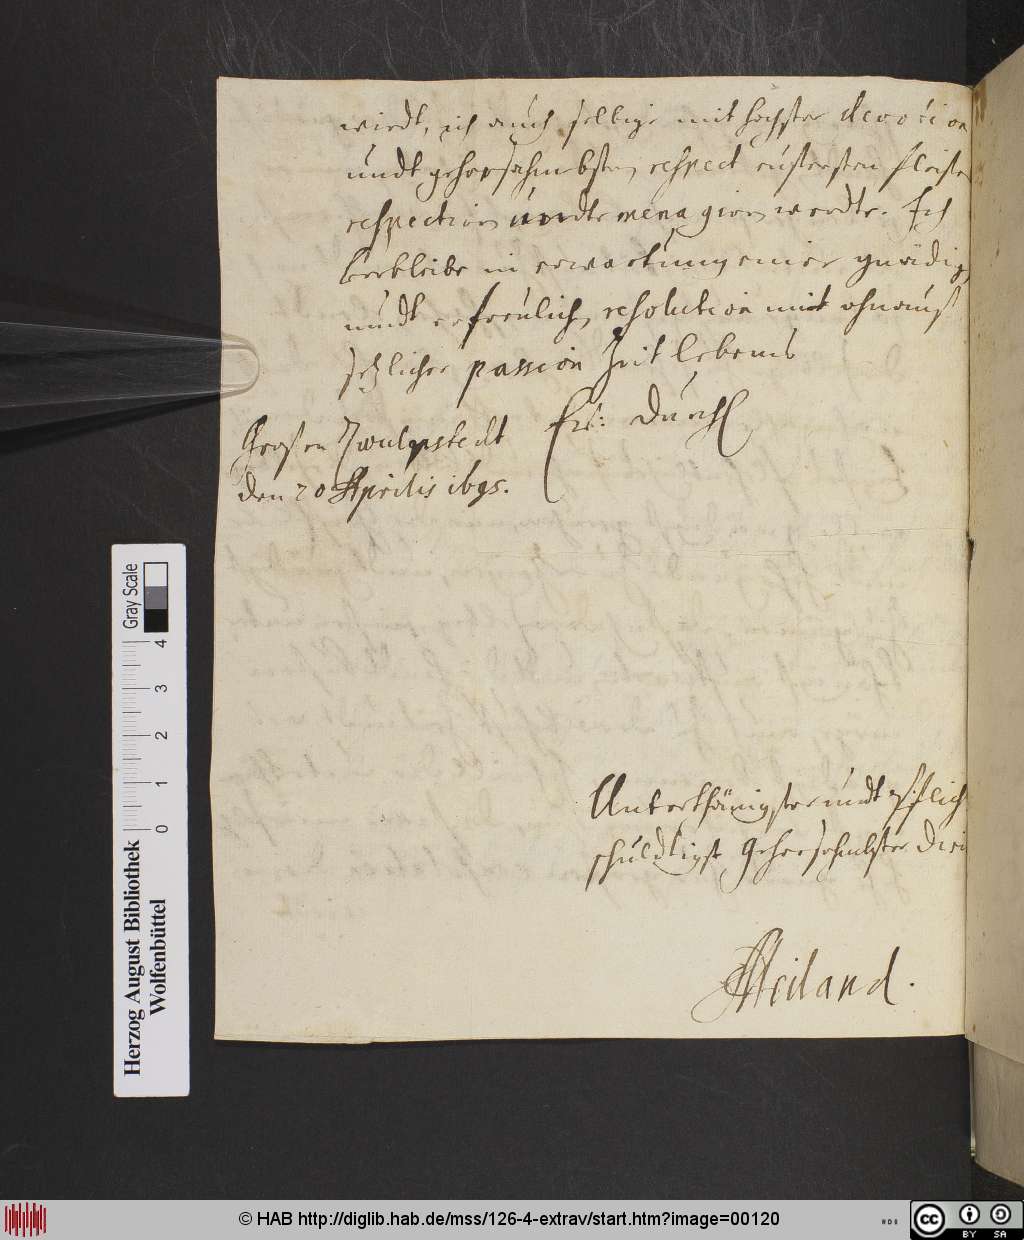 wirdt, ich auch selbige mit hochster devotion
undt gehorsahmbsten respect eusersten fleises
respectiren undt menagiren werdte. Ich
verbleibe in erwartung einer gnädig
undt erfreulich resolution mit ohnauß
setzlicher passion Zeit lebens
Ew: Durchl
Großen Twulpstedt
den 20 Aprilis 1695.
Unterthänigster undt pflich
schuldtigst gehorsahmbster
Heiland.
Gray Scale
0 1 2 3 4
Herzog August Bibliothek
Wolfenbüttel
© HAB http://diglib.hab.de/mss/126-4-extrav/start.htm?image=00120
cc BY SA